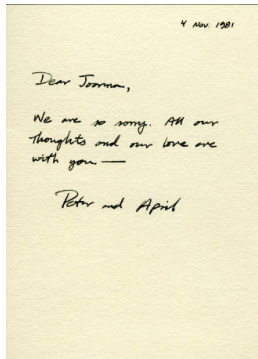 4 Nov. 1981
Dear Joorma,
We are so sorry. All our
thoughts and our love are
with you —
Peter and April